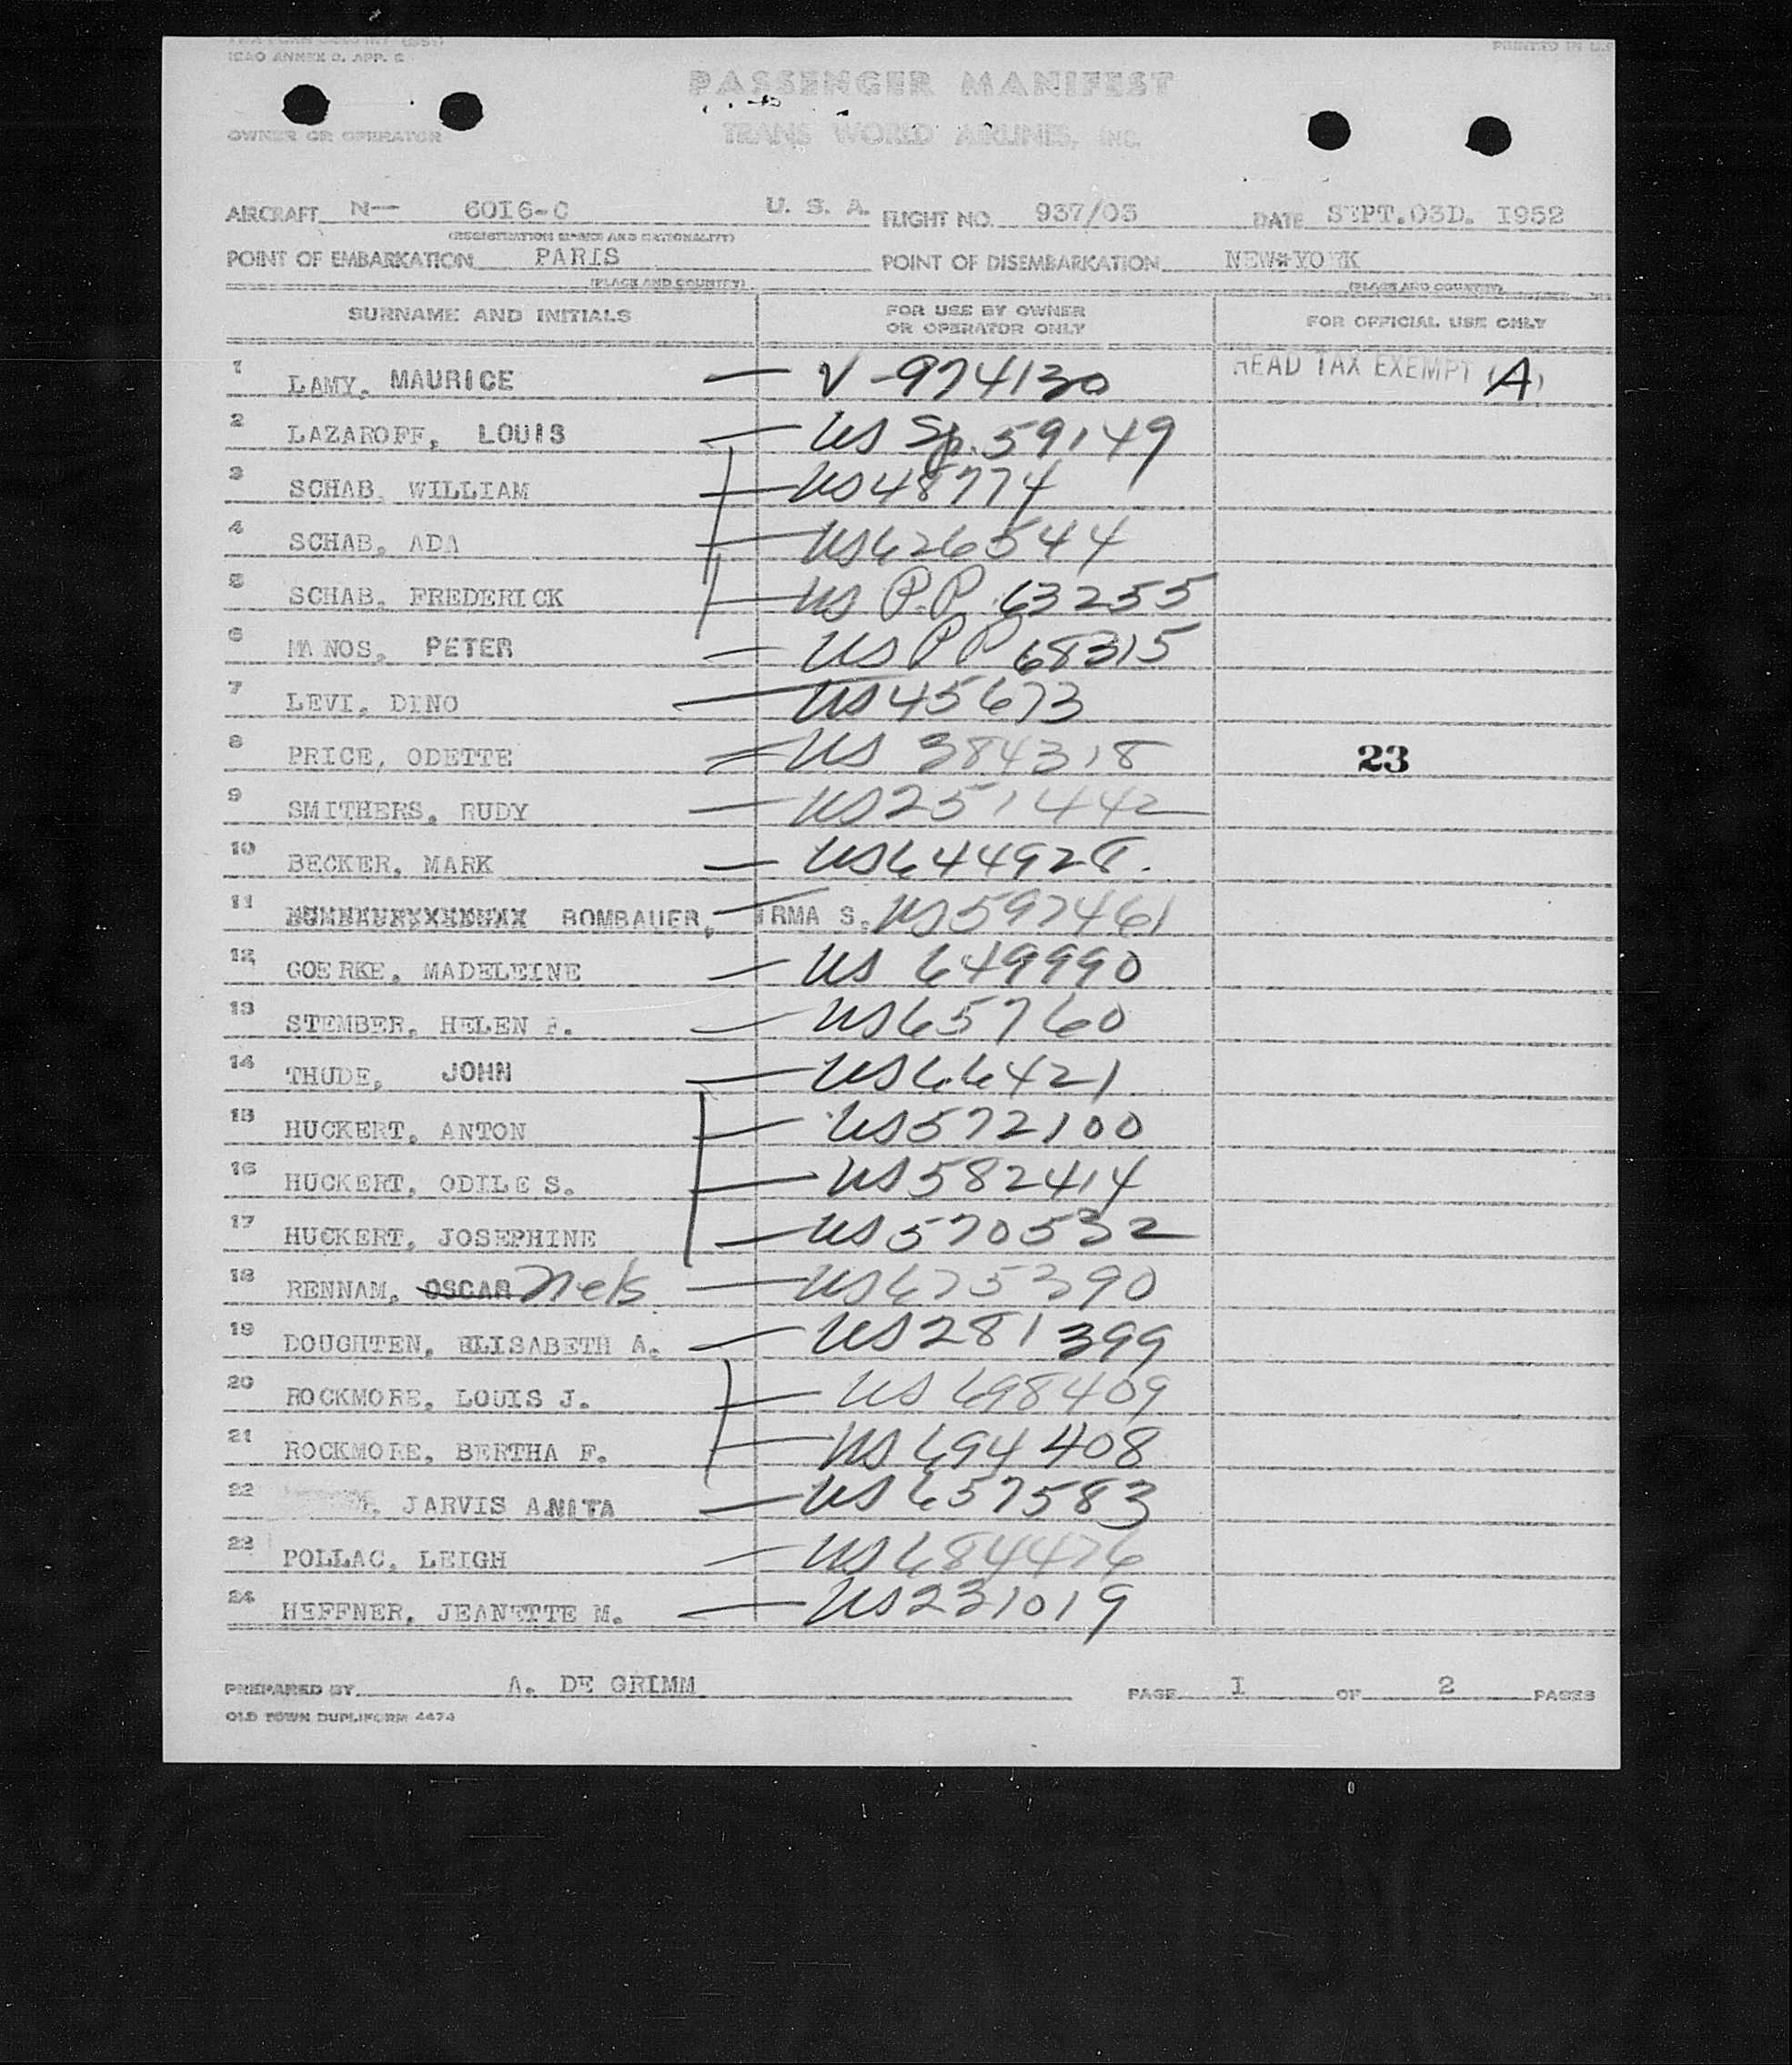 ICAO ANNEX 9, APP. 2
PRINTED IN U.S.
PASSENGER MANIFEST
OWNER OR OPERATOR
TRANS WORLD AIRLINES, INC.
AIRCRAFT N— 6016-C U. S. A. FLIGHT NO. 937/03 DATE SEPT.03D. 1952
(REGISTRATION MARKS AND NATIONALITY)
POINT OF EMBARKATION PARIS POINT OF DISEMBARKATION NEW*YORK
(PLACE AND COUNTRY) (PLACE AND COUNTRY)
SURNAME AND INITIALS FOR USE BY OWNER OR OPERATOR ONLY FOR OFFICIAL USE ONLY
1 LAMY, MAURICE — V-974130 HEAD TAX EXEMPT (A)
2 LAZAROFF, LOUIS — US Sp. 59149
3 SCHAB, WILLIAM — US 48774
4 SCHAB, ADA — US 626544
5 SCHAB, FREDERICK — US P.P. 63255
6 MANOS, PETER — US PP 68315
7 LEVI, DINO — US 45673
8 PRICE, ODETTE — US 384318 23
9 SMITHERS, RUDY — US 251442
10 BECKER, MARK — US 644928.
11 ROMBAUER, IRMA S. US 597461
12 GOERKE, MADELEINE — US 649990
13 STEMBER, HELEN F. — US 65760
14 THUDE, JOHN — US 66421
15 HUCKERT, ANTON — US 572100
16 HUCKERT, ODILE S. — US 582414
17 HUCKERT, JOSEPHINE — US 570532
18 RENNAM, OSCAR Nels — US 675390
19 DOUGHTEN, ELISABETH A. — US 281399
20 ROCKMORE, LOUIS J. — US 698409
21 ROCKMORE, BERTHA F. — US 694408
22 JARVIS ANITA — US 657583
23 POLLAC, LEIGH — US 684476
24 HEFFNER, JEANETTE M. — US 231019
PREPARED BY A. DE GRIMM PAGE 1 OF 2 PAGES
OLD TOWN DUPLIFORM 4474